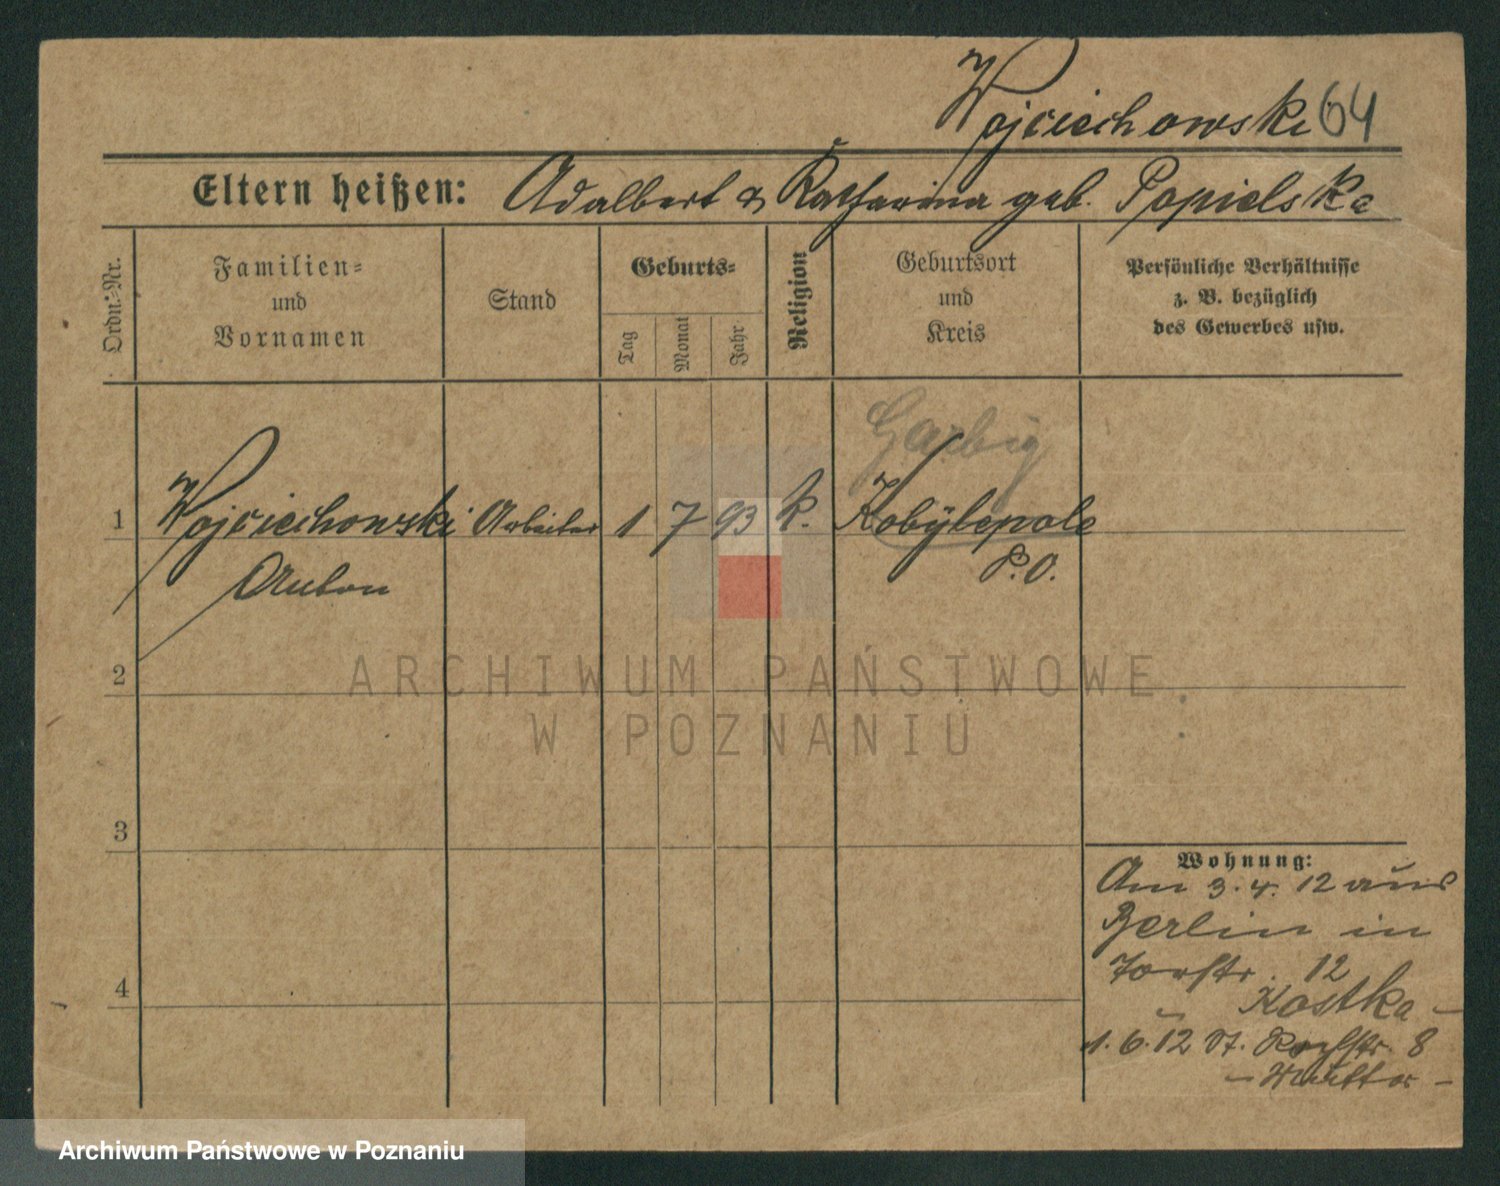 Wojciechowski 64
Eltern heißen: Adalbert & Katharina geb. Popielska
Ordn.-Nr.
Familien-
und
Vornamen
Stand
Geburts-
Tag
Monat
Jahr
Religion
Geburtsort
und
Kreis
Persönliche Verhältnisse
z. B. bezüglich
des Gewerbes usw.
Garbig
1 Wojciechowski Arbeiter 1 7 93 k. Kobylepole
Anton P. O.
2
ARCHIWUM PAŃSTWOWE
W POZNANIU
3
Wohnung:
Am 3.4.12 aus
Berlin in
Torstr. 12
4
Kostka -
1.6.12 St. Rochstr. 8
- Mutter -
Archiwum Państwowe w Poznaniu